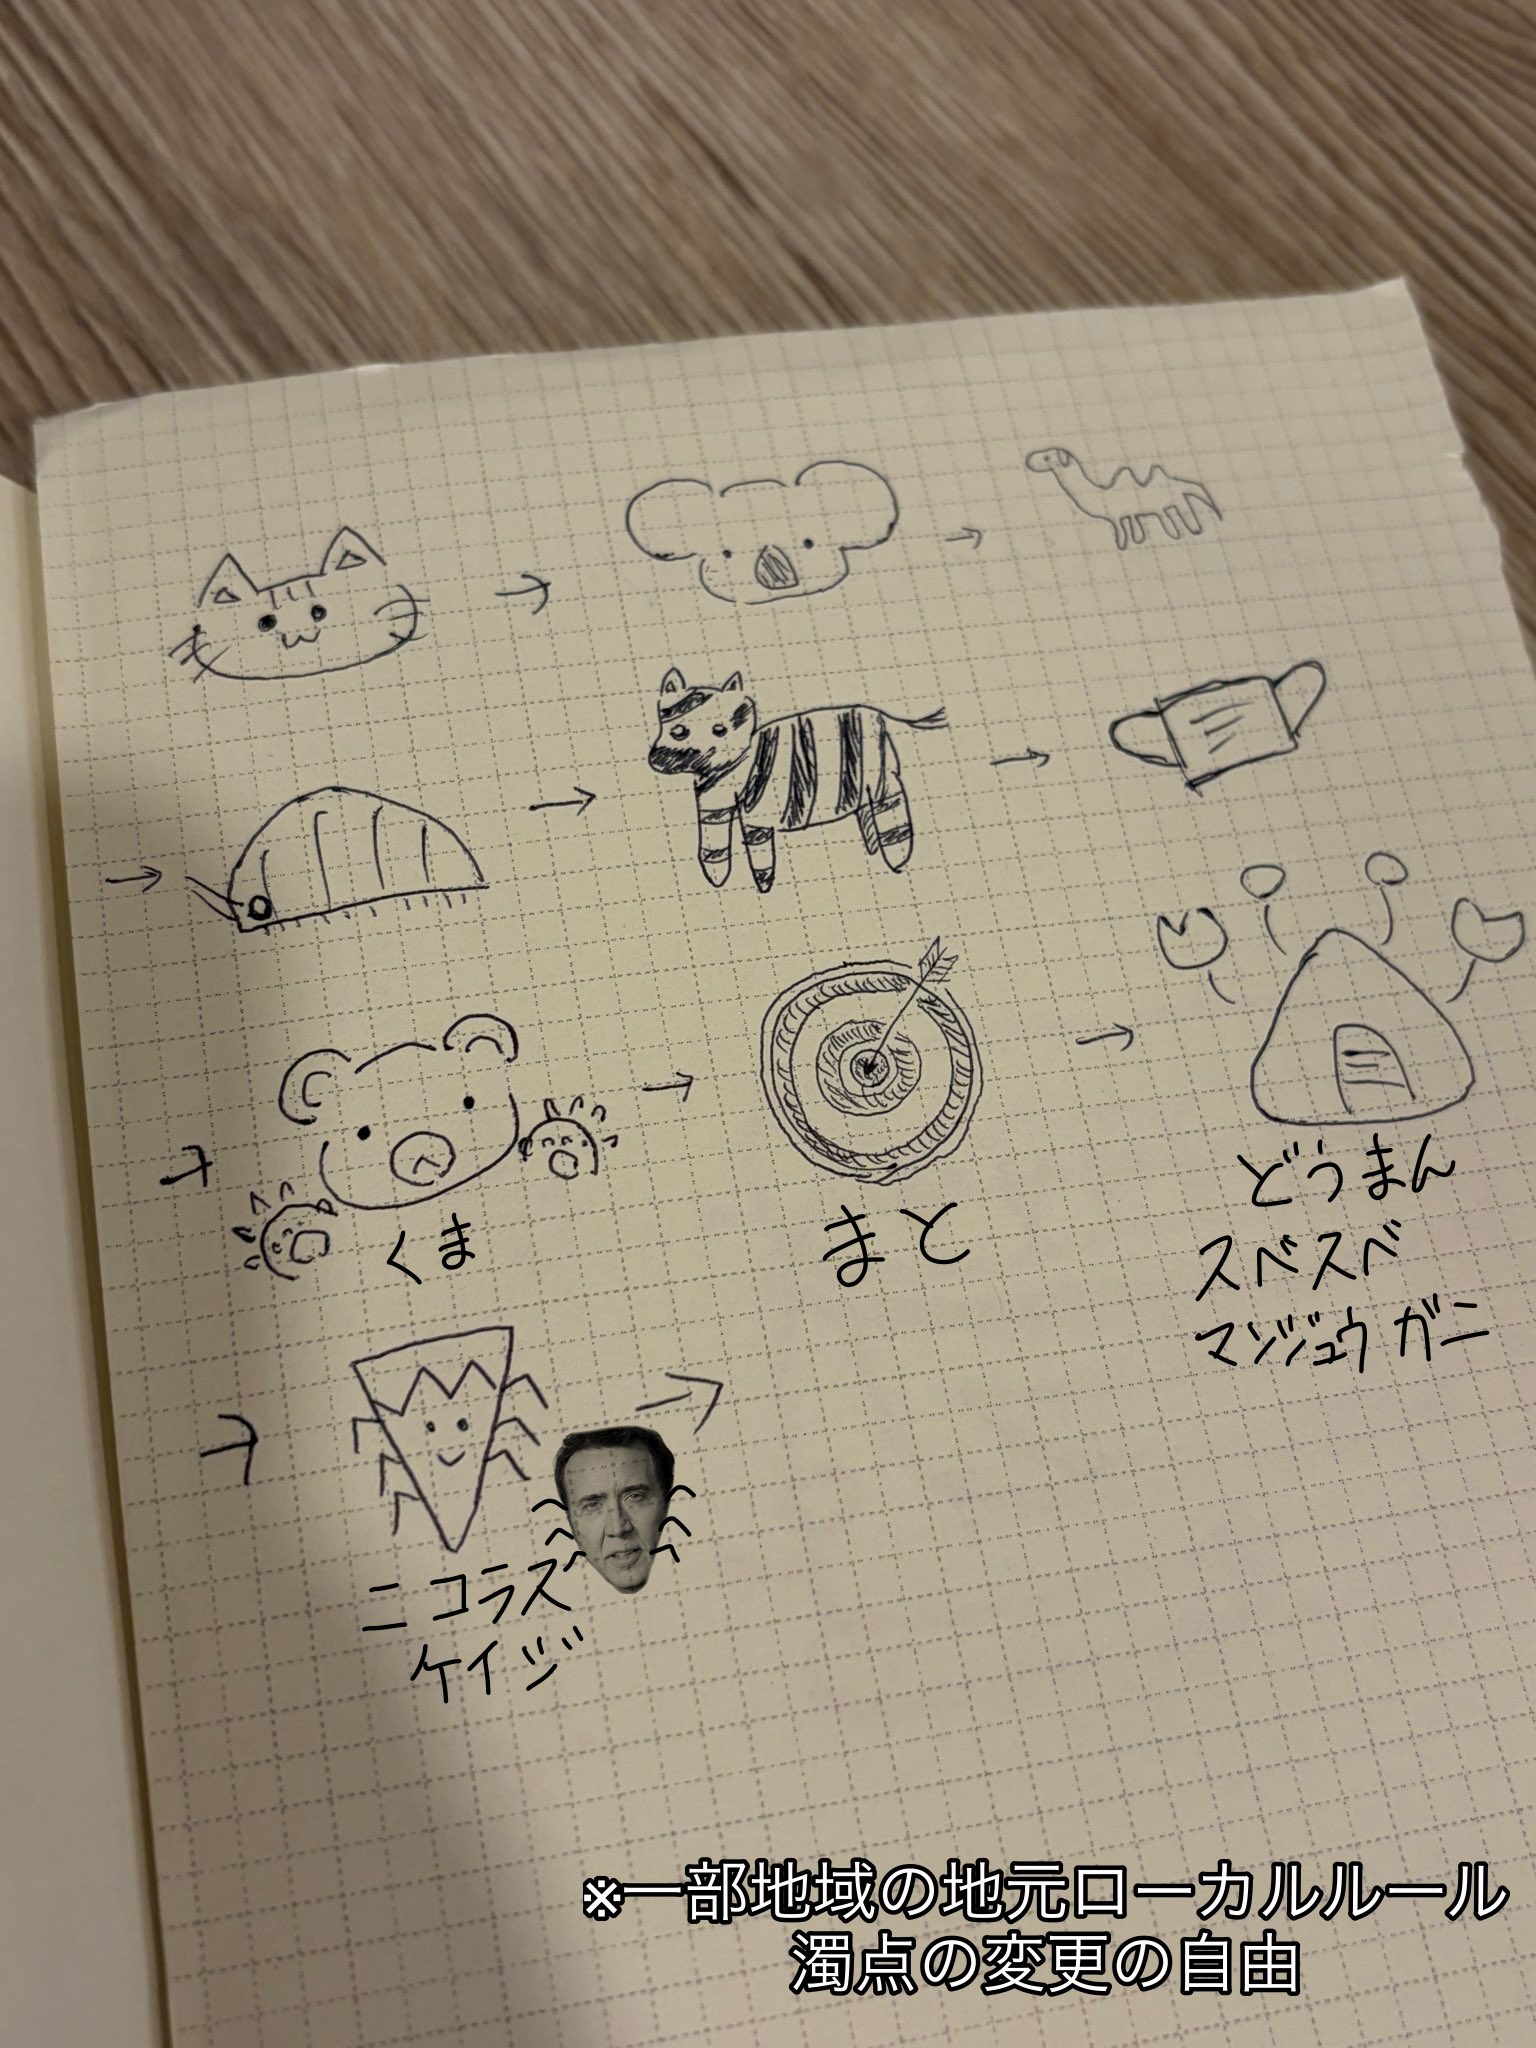 くま
まと
どうまん
スベスベ
マンジュウガニ
ニコラス
ケイジ
※一部地域の地元ローカルルール
濁点の変更の自由